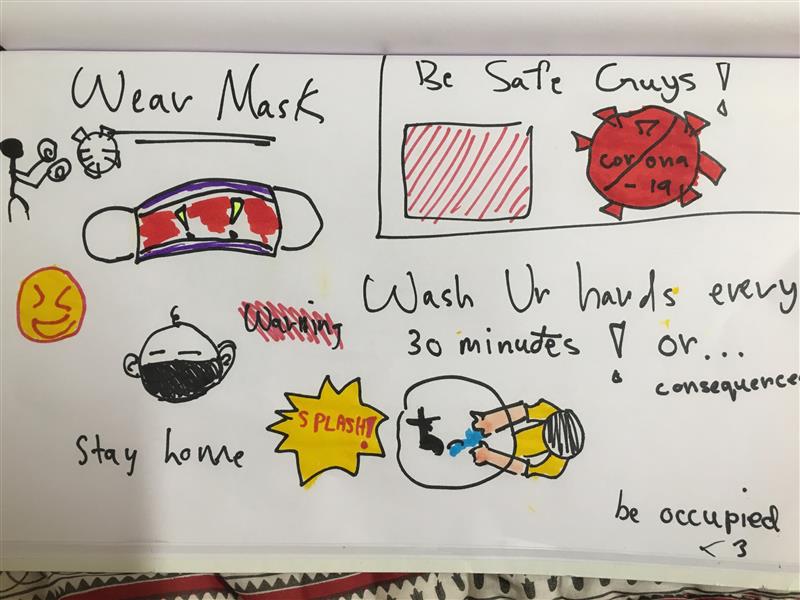 Wear Mask
Be Safe Guys !
corona
-19
Wash Ur hands every
30 minutes ! or...
consequences
Warning
SPLASH!
Stay home
be occupied
<3